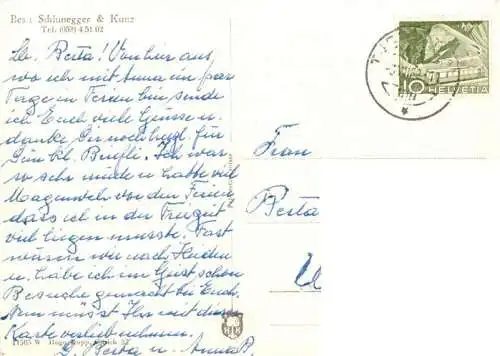 Bes: Schlunegger & Kunz
Tel. (033) 4 51 02
Lb. Berta! Von hier aus,
wo ich mit Anna ein paar
Tage in Ferien bin sende
ich Euch viele Grüsse u.
danke Dir noch herzl. für
Dein kl. Briefli. Ich war
so sehr müde u. hatte viel
Magenweh vor den Ferien
dass ich in der Freizeit
viel liegen musste. Fast
wären wir nach Heiden
u. habe ich im Geist schon
Besuche gemacht bei Euch.
Nun müsst Ihr mit dieser
Karte vorlieb nehmen.
Berta u. Anna
HELVETIA
10
Frau
Berta